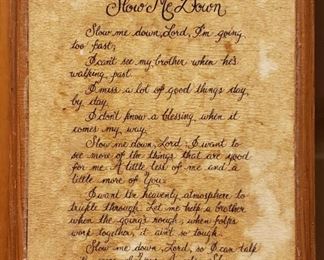 Slow Me Down
Slow me down, Lord, I'm going
too fast;
I can't see my brother when he's
walking past.
I miss a lot of good things day
by day.
I don't know a blessing when it
comes my way.
Slow me down, Lord; I want to
see more of the things that are good
for me. A little less of me and a
little more of You.
I want the heavenly atmosphere to
trickle through. Let me help a brother
when the going's rough; when folks
work together, it ain't so tough.
Slow me down, Lord, so I can talk